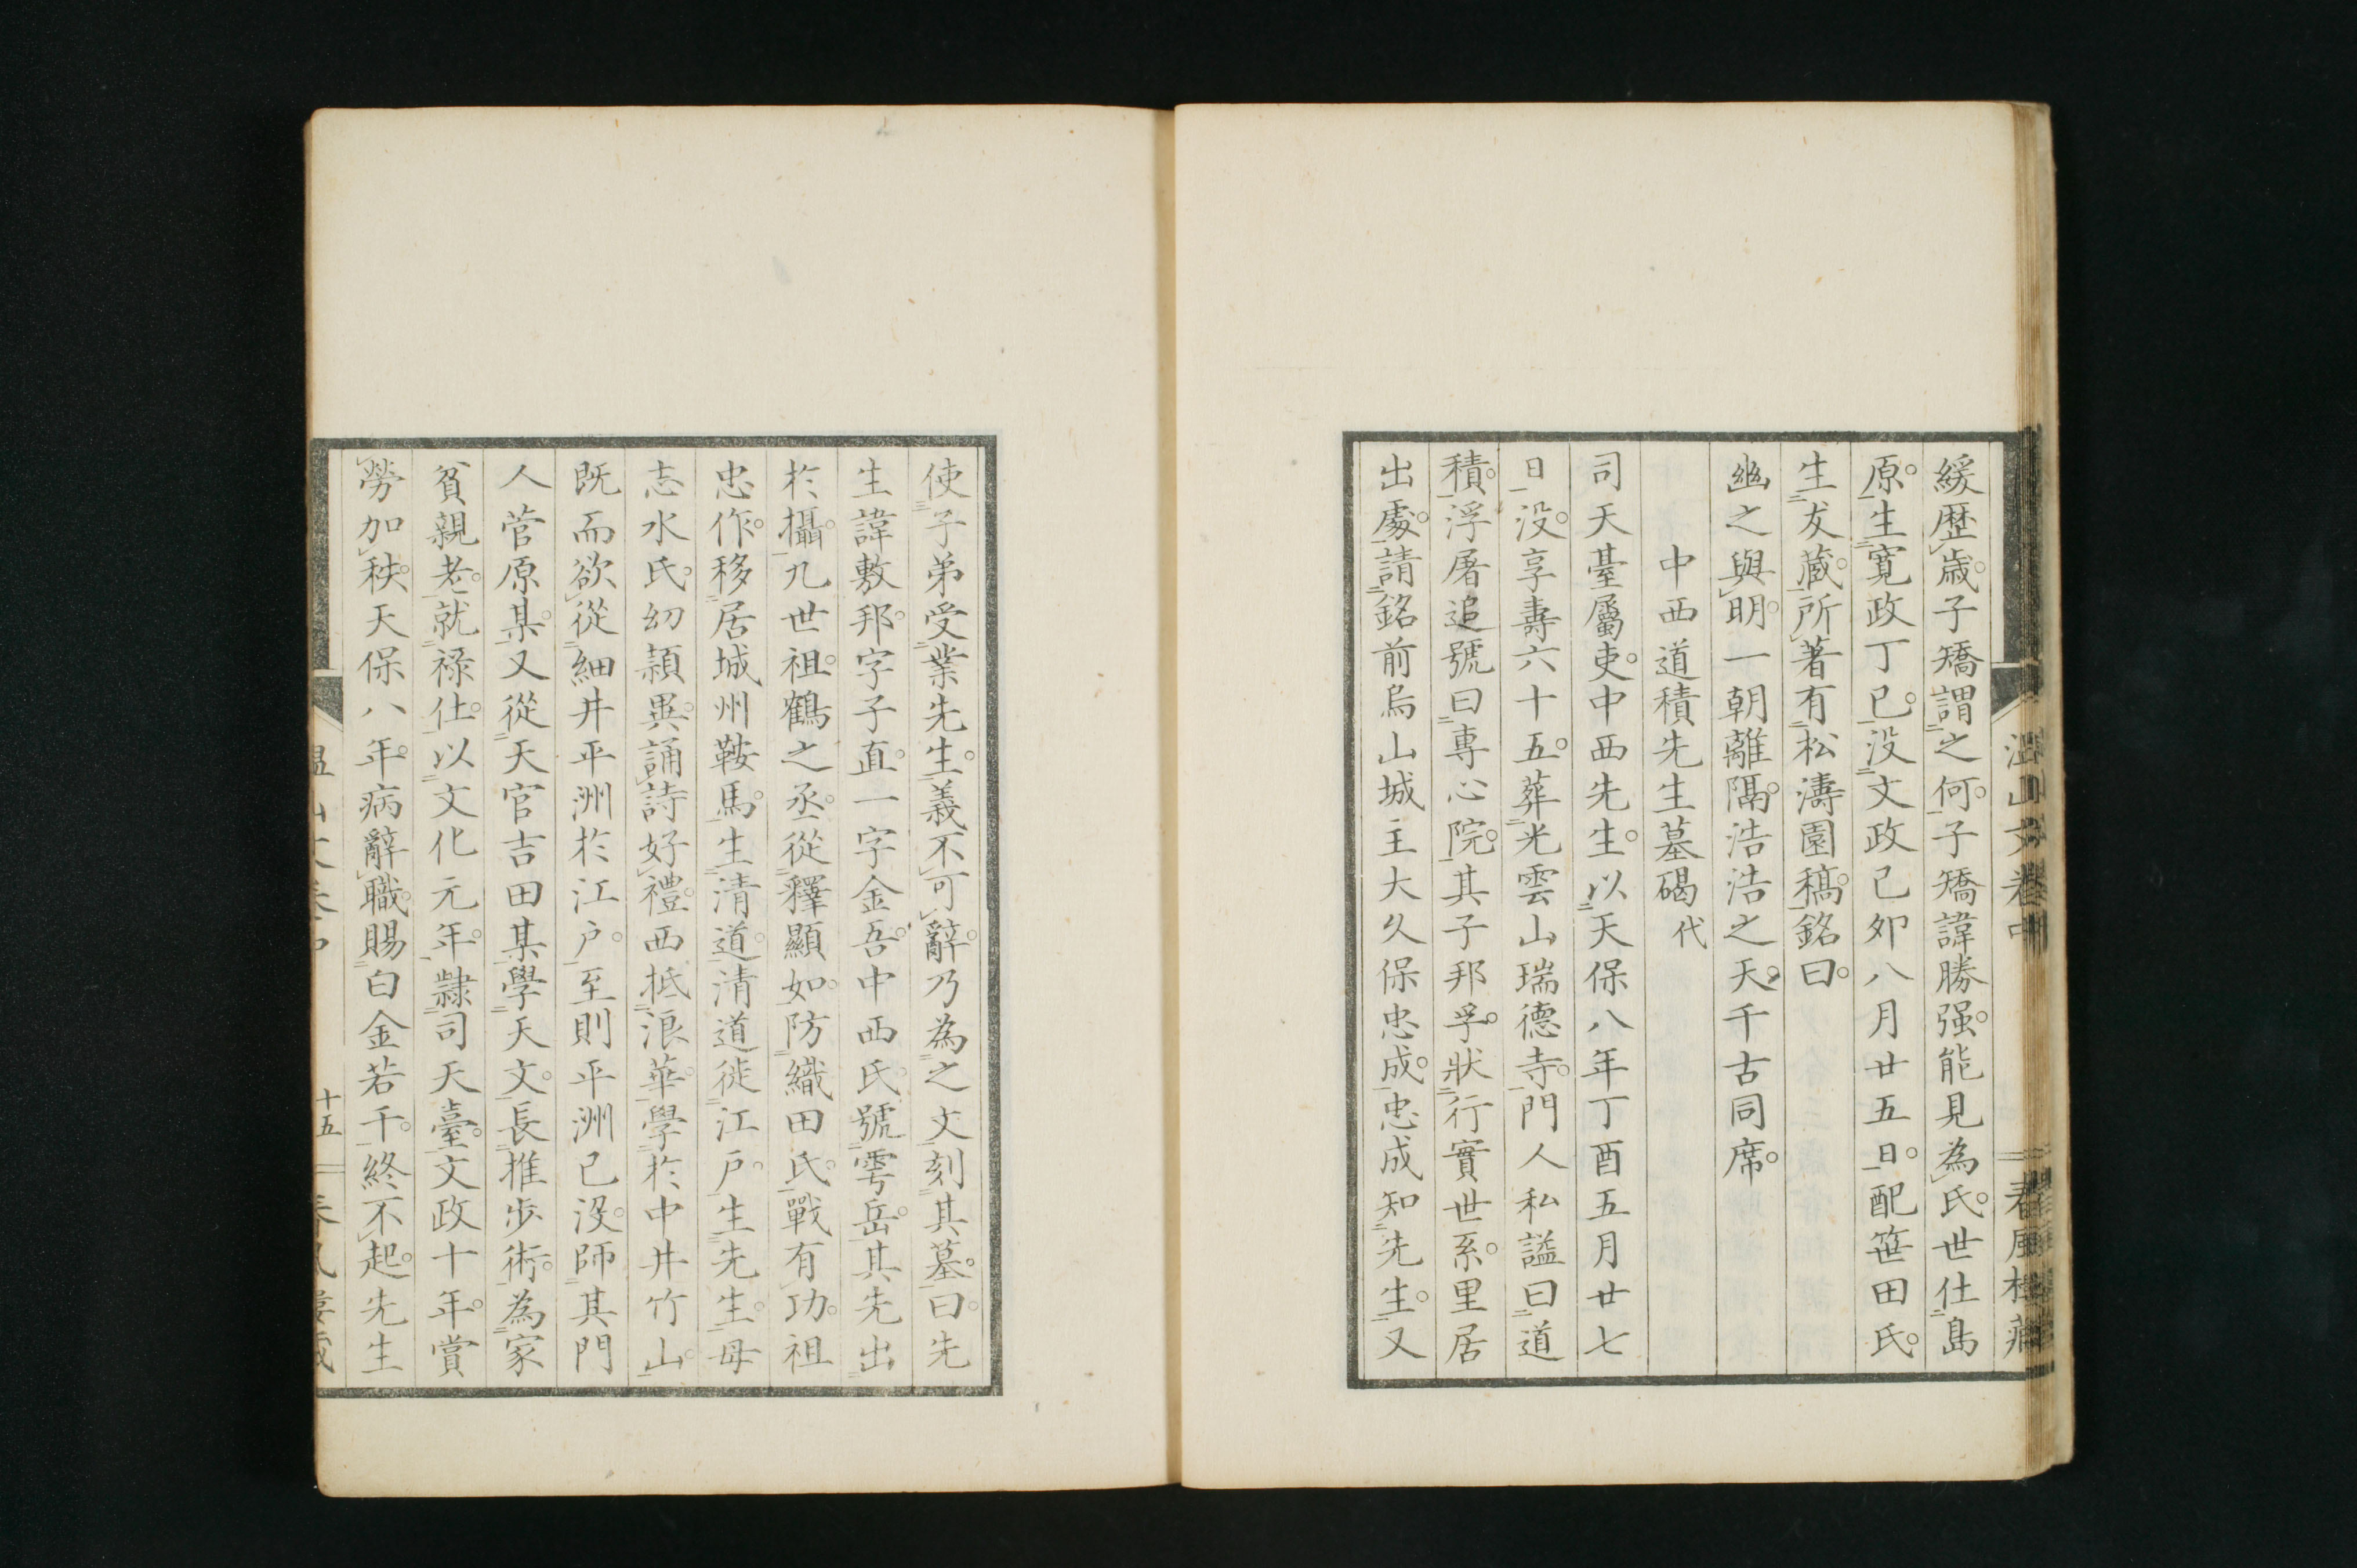 緩歴歳子矯謂之何子矯諱勝强能見為氏世仕島
原生寛政丁巳没文政己夘八月廿五日配笹田氏
生友蔵所著有松濤園稿銘曰
幽之與明一朝離隔浩浩之天千古同席
中西道積先生墓碣代
司天臺屬吏中西先生以天保八年丁酉五月廿七
日没享壽六十五葬光雲山瑞德寺門人私謚曰道
積浮屠追號曰專心院其子邦孚狀行實世系里居
出處請銘前烏山城主大久保忠成忠成知先生又
使子弟受業先生義不可辭乃為之文刻其墓曰先
生諱敷邦字子直一字金吾中西氏號雩岳其先出
於攝九世祖鶴之丞從釋顯如防織田氏戰有功祖
忠作移居城州鞍馬生清道清道徙江戸生先生母
志水氏幼穎異誦詩好禮西抵浪華學於中井竹山
既而欲從細井平洲於江戸至則平洲已没師其門
人菅原某又從天官吉田某學天文長推步術為家
貧親老就祿仕以文化元年隸司天臺文政十年賞
勞加秩天保八年病辭職賜白金若干終不起先生
十五